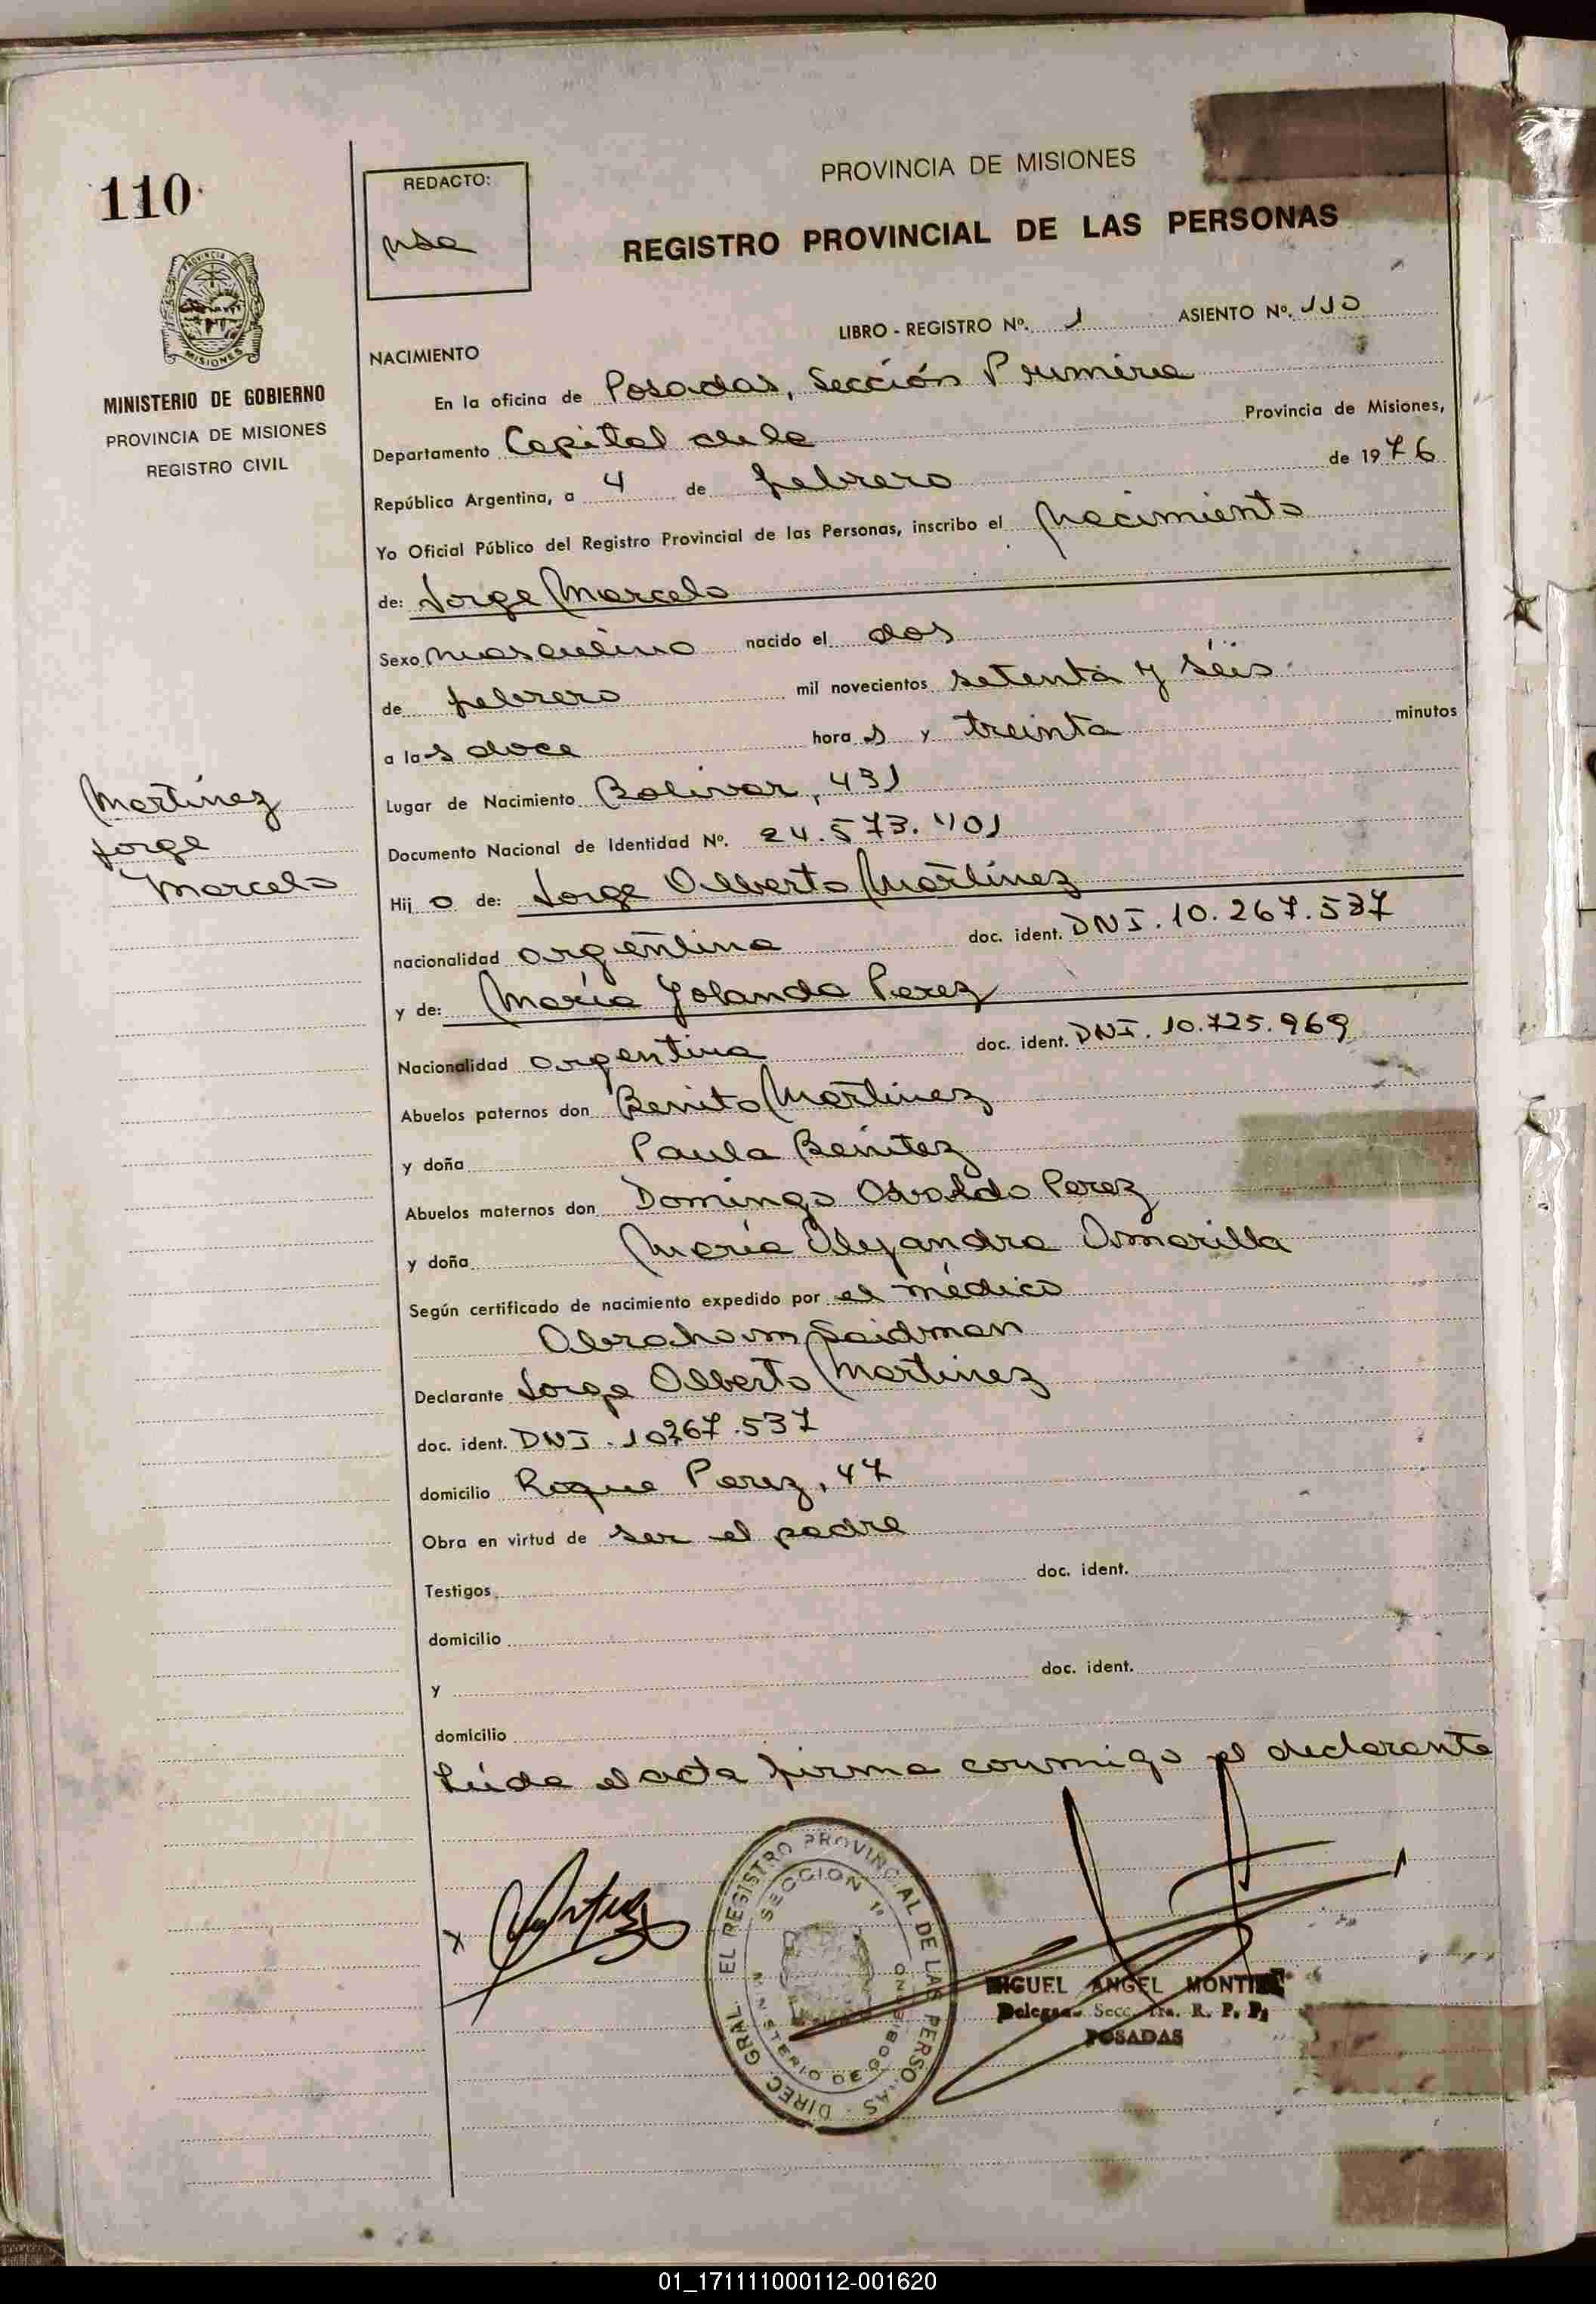 110
REDACTO:
PROVINCIA DE MISIONES
REGISTRO PROVINCIAL DE LAS PERSONAS
PROVINCIA DE
MISIONES
MINISTERIO DE GOBIERNO
PROVINCIA DE MISIONES
REGISTRO CIVIL
LIBRO - REGISTRO Nº. 1 ASIENTO Nº. 110
NACIMIENTO
En la oficina de Posadas, Sección Primera
Departamento Capital de la Provincia de Misiones,
República Argentina, a 4 de febrero de 1976
Yo Oficial Público del Registro Provincial de las Personas, inscribo el Nacimiento
de: Jorge Marcelo
Sexo masculino nacido el dos
de febrero mil novecientos setenta y séis
a las doce horas y treinta minutos
Martínez
Jorge
Marcelo
Lugar de Nacimiento Bolivar, 431
Documento Nacional de Identidad Nº. 24.573.401
Hijo de: Jorge Alberto Martinez
nacionalidad argentina doc. ident. DNI. 10.267.537
y de: María Yolanda Perez
Nacionalidad argentina doc. ident. DNI. 10.725.969
Abuelos paternos don Benito Martinez
y doña Paula Benitez
Abuelos maternos don Domingo Osvaldo Perez
y doña María Alejandra Amarilla
Según certificado de nacimiento expedido por el médico
Abraham Saidman
Declarante Jorge Alberto Martinez
doc. ident. DNI. 10267.537
domicilio Roque Perez, 47
Obra en virtud de ser el padre
Testigos doc. ident.
domicilio
y doc. ident.
domicilio
Leída el acta firma conmigo el declarante
DIREC. GRAL. EL REGISTRO PROVINCIAL DE LAS PERSONAS
SECCION 1º
MINISTERIO DE GOBIERNO
MIGUEL ANGEL
Secc. 1ra. R. P. P.
POSADAS
01_171111000112-001620